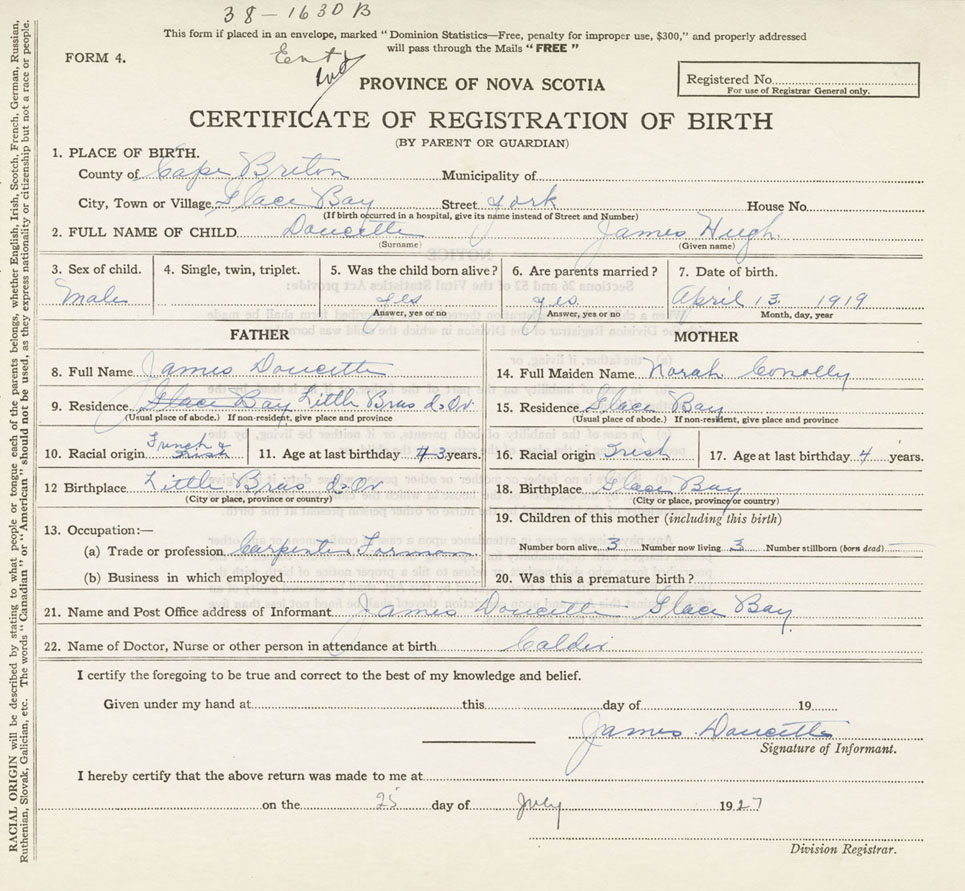 38-1630B
This form if placed in an envelope, marked "Dominion Statistics—Free, penalty for improper use, $300," and properly addressed
will pass through the Mails "FREE"
FORM 4.
Registered No.
For use of Registrar General only.
PROVINCE OF NOVA SCOTIA
CERTIFICATE OF REGISTRATION OF BIRTH
(BY PARENT OR GUARDIAN)
1. PLACE OF BIRTH.
County of Cape Breton Municipality of
City, Town or Village Glace Bay Street York House No.
(If birth occurred in a hospital, give its name instead of Street and Number)
2. FULL NAME OF CHILD Doucette James Hugh
(Surname) (Given name)
3. Sex of child. 4. Single, twin, triplet. 5. Was the child born alive? 6. Are parents married? 7. Date of birth.
Male yes yes. April 13 1919
Answer, yes or no Answer, yes or no Month, day, year
FATHER
8. Full Name James Doucette
9. Residence Glace Bay Little Bras d'Or
(Usual place of abode.) If non-resident, give place and province
10. Racial origin French & Irish 11. Age at last birthday 43 years.
12 Birthplace Little Bras d'Or
(City or place, province or country)
13. Occupation:—
(a) Trade or profession Carpenter Forman
(b) Business in which employed
MOTHER
14. Full Maiden Name Norah Conolly
15. Residence Glace Bay
(Usual place of abode.) If non-resident, give place and province
16. Racial origin Irish 17. Age at last birthday 4 years.
18. Birthplace Glace Bay
(City or place, province or country)
19. Children of this mother (including this birth)
Number born alive 3 Number now living 3 Number stillborn (born dead) —
20. Was this a premature birth?
21. Name and Post Office address of Informant James Doucette Glace Bay.
22. Name of Doctor, Nurse or other person in attendance at birth Calder
I certify the foregoing to be true and correct to the best of my knowledge and belief.
Given under my hand at this day of 19
James Doucette
Signature of Informant.
I hereby certify that the above return was made to me at
on the 25 day of July 1927
Division Registrar.
RACIAL ORIGIN will be described by stating to what people or tongue each of the parents belongs, whether English, Irish, Scotch, French, German, Russian,
Ruthenian, Slovak, Galician, etc. The words "Canadian" or "American" should not be used, as they express nationality or citizenship but not a race or people.